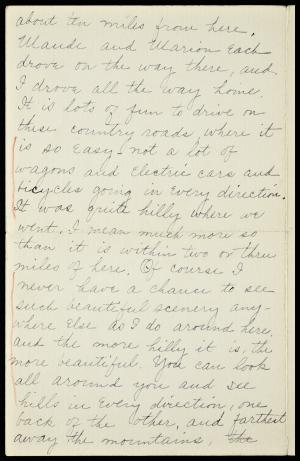 about ten miles from here.
Maude and Marion each
drove on the way there, and
I drove all the way home.
It is lots of fun to drive on
these country roads, where it
is so easy - not a lot of
wagons and electric cars and
bicycles going in every direction.
It was quite hilly where we
went. I mean much more so
than it is within two or three
miles of here. Of course I
never have a chance to see
such beautiful scenery any-
where else as I do around here,
and the more hilly it is, the
more beautiful. You can look
all around you and see
hills in every direction, one
back of the other, and farthest
away the mountains, the